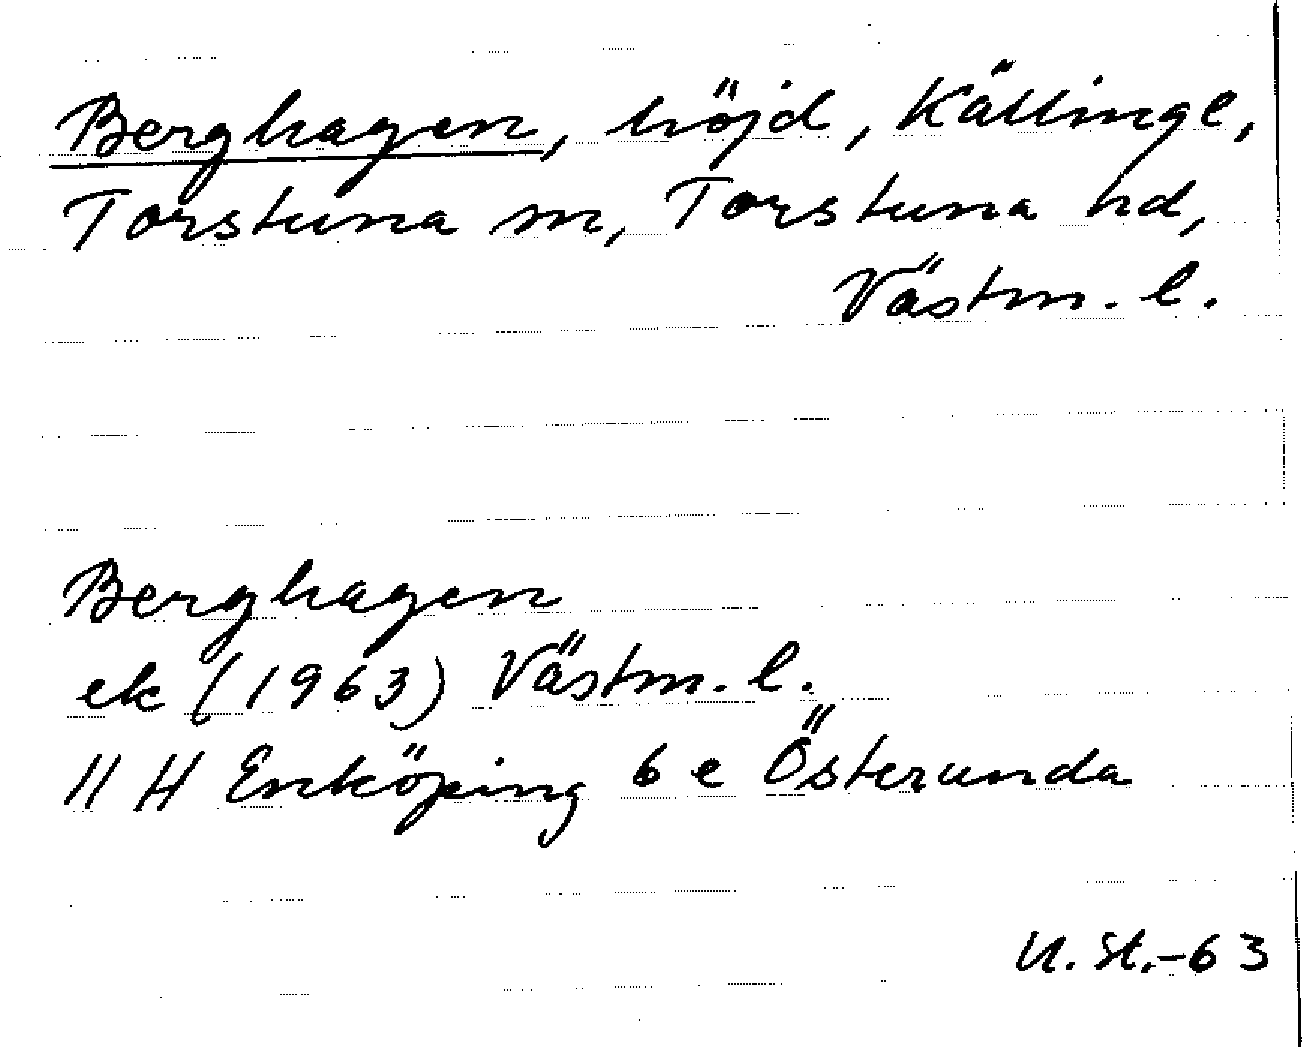 Berghagen, höjd, Källinge,
Torstuna sn, Torstuna hd,
Västm. l.
Berghagen
ek (1963) Västm. l.
11 H Enköping 6 e Österunda
U. St.-63